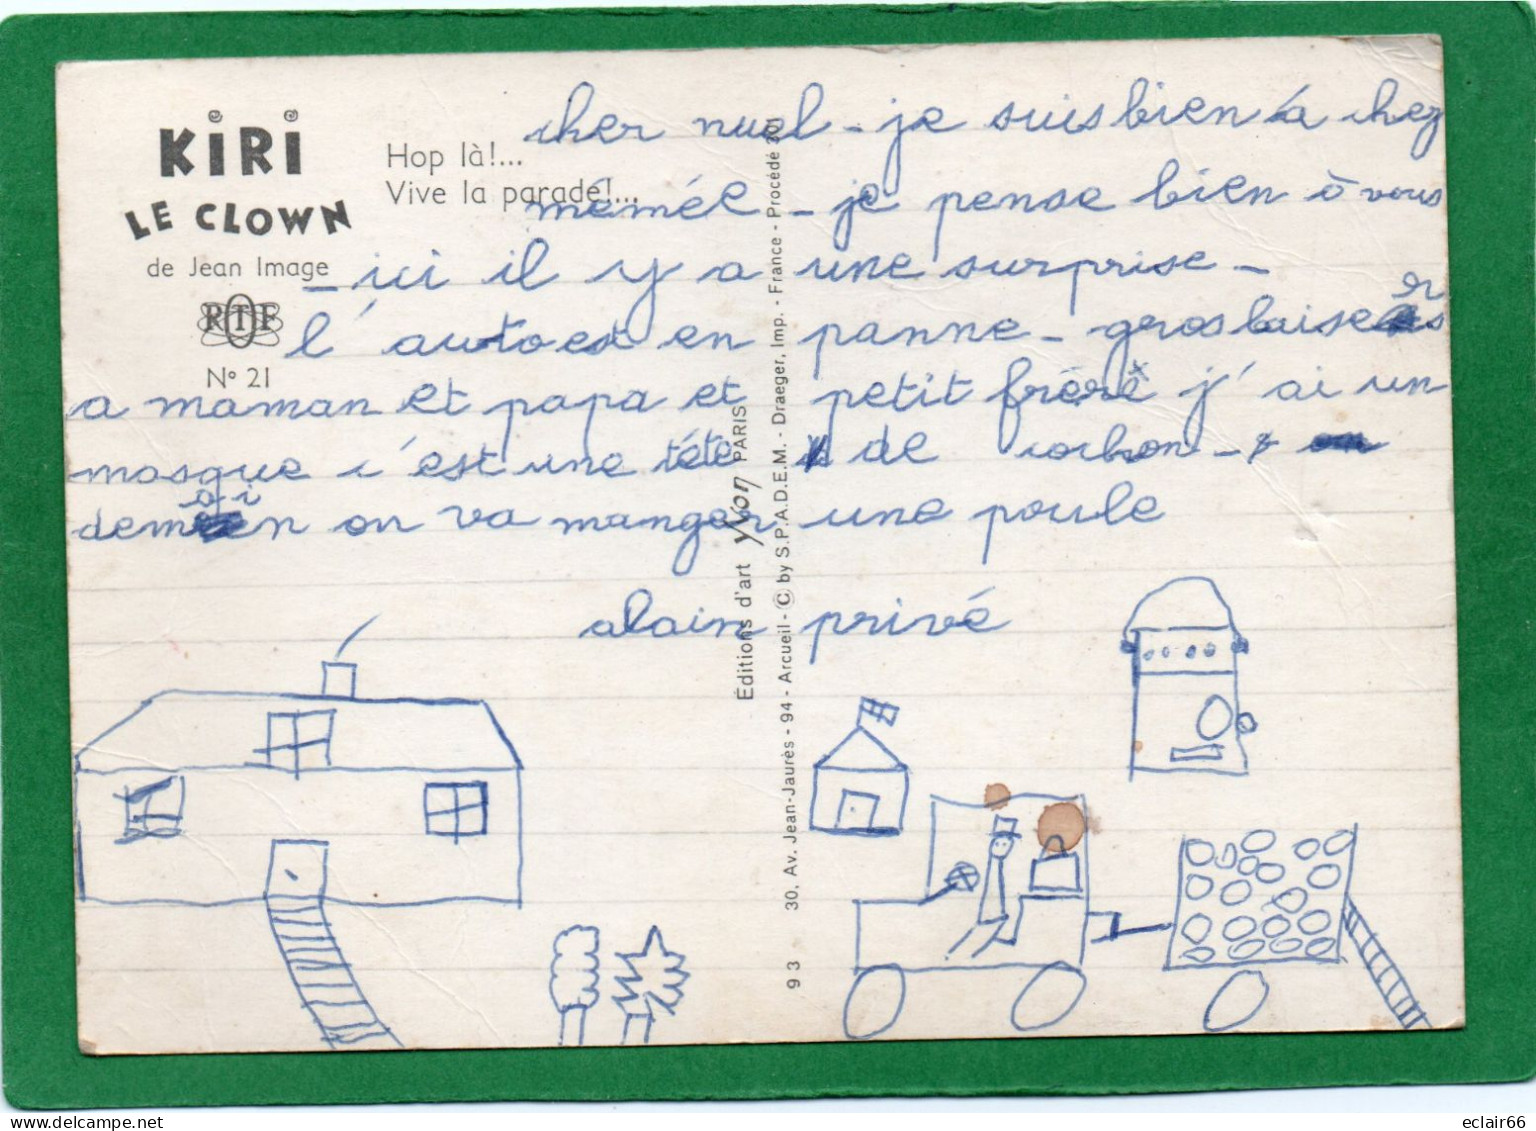 KiRi
LE CLOWN
de Jean Image
RTF
N° 21
Hop là!...
Vive la parade!...
cher nuel - je suis bien a chez
mémée - je pense bien à vous
- ici il y a une surprise -
l'auto est en panne - gros baisers
a maman et papa et petit frére j'ai un
masque c'est une tété de cochon -
demain on va manger une poule
alain privé
Éditions d'art Yvon PARIS
93 30, Av. Jean-Jaurès - 94 - Arcueil - © by S.P.A.D.E.M. - Draeger, Imp. - France - Procédé 301
eclair66